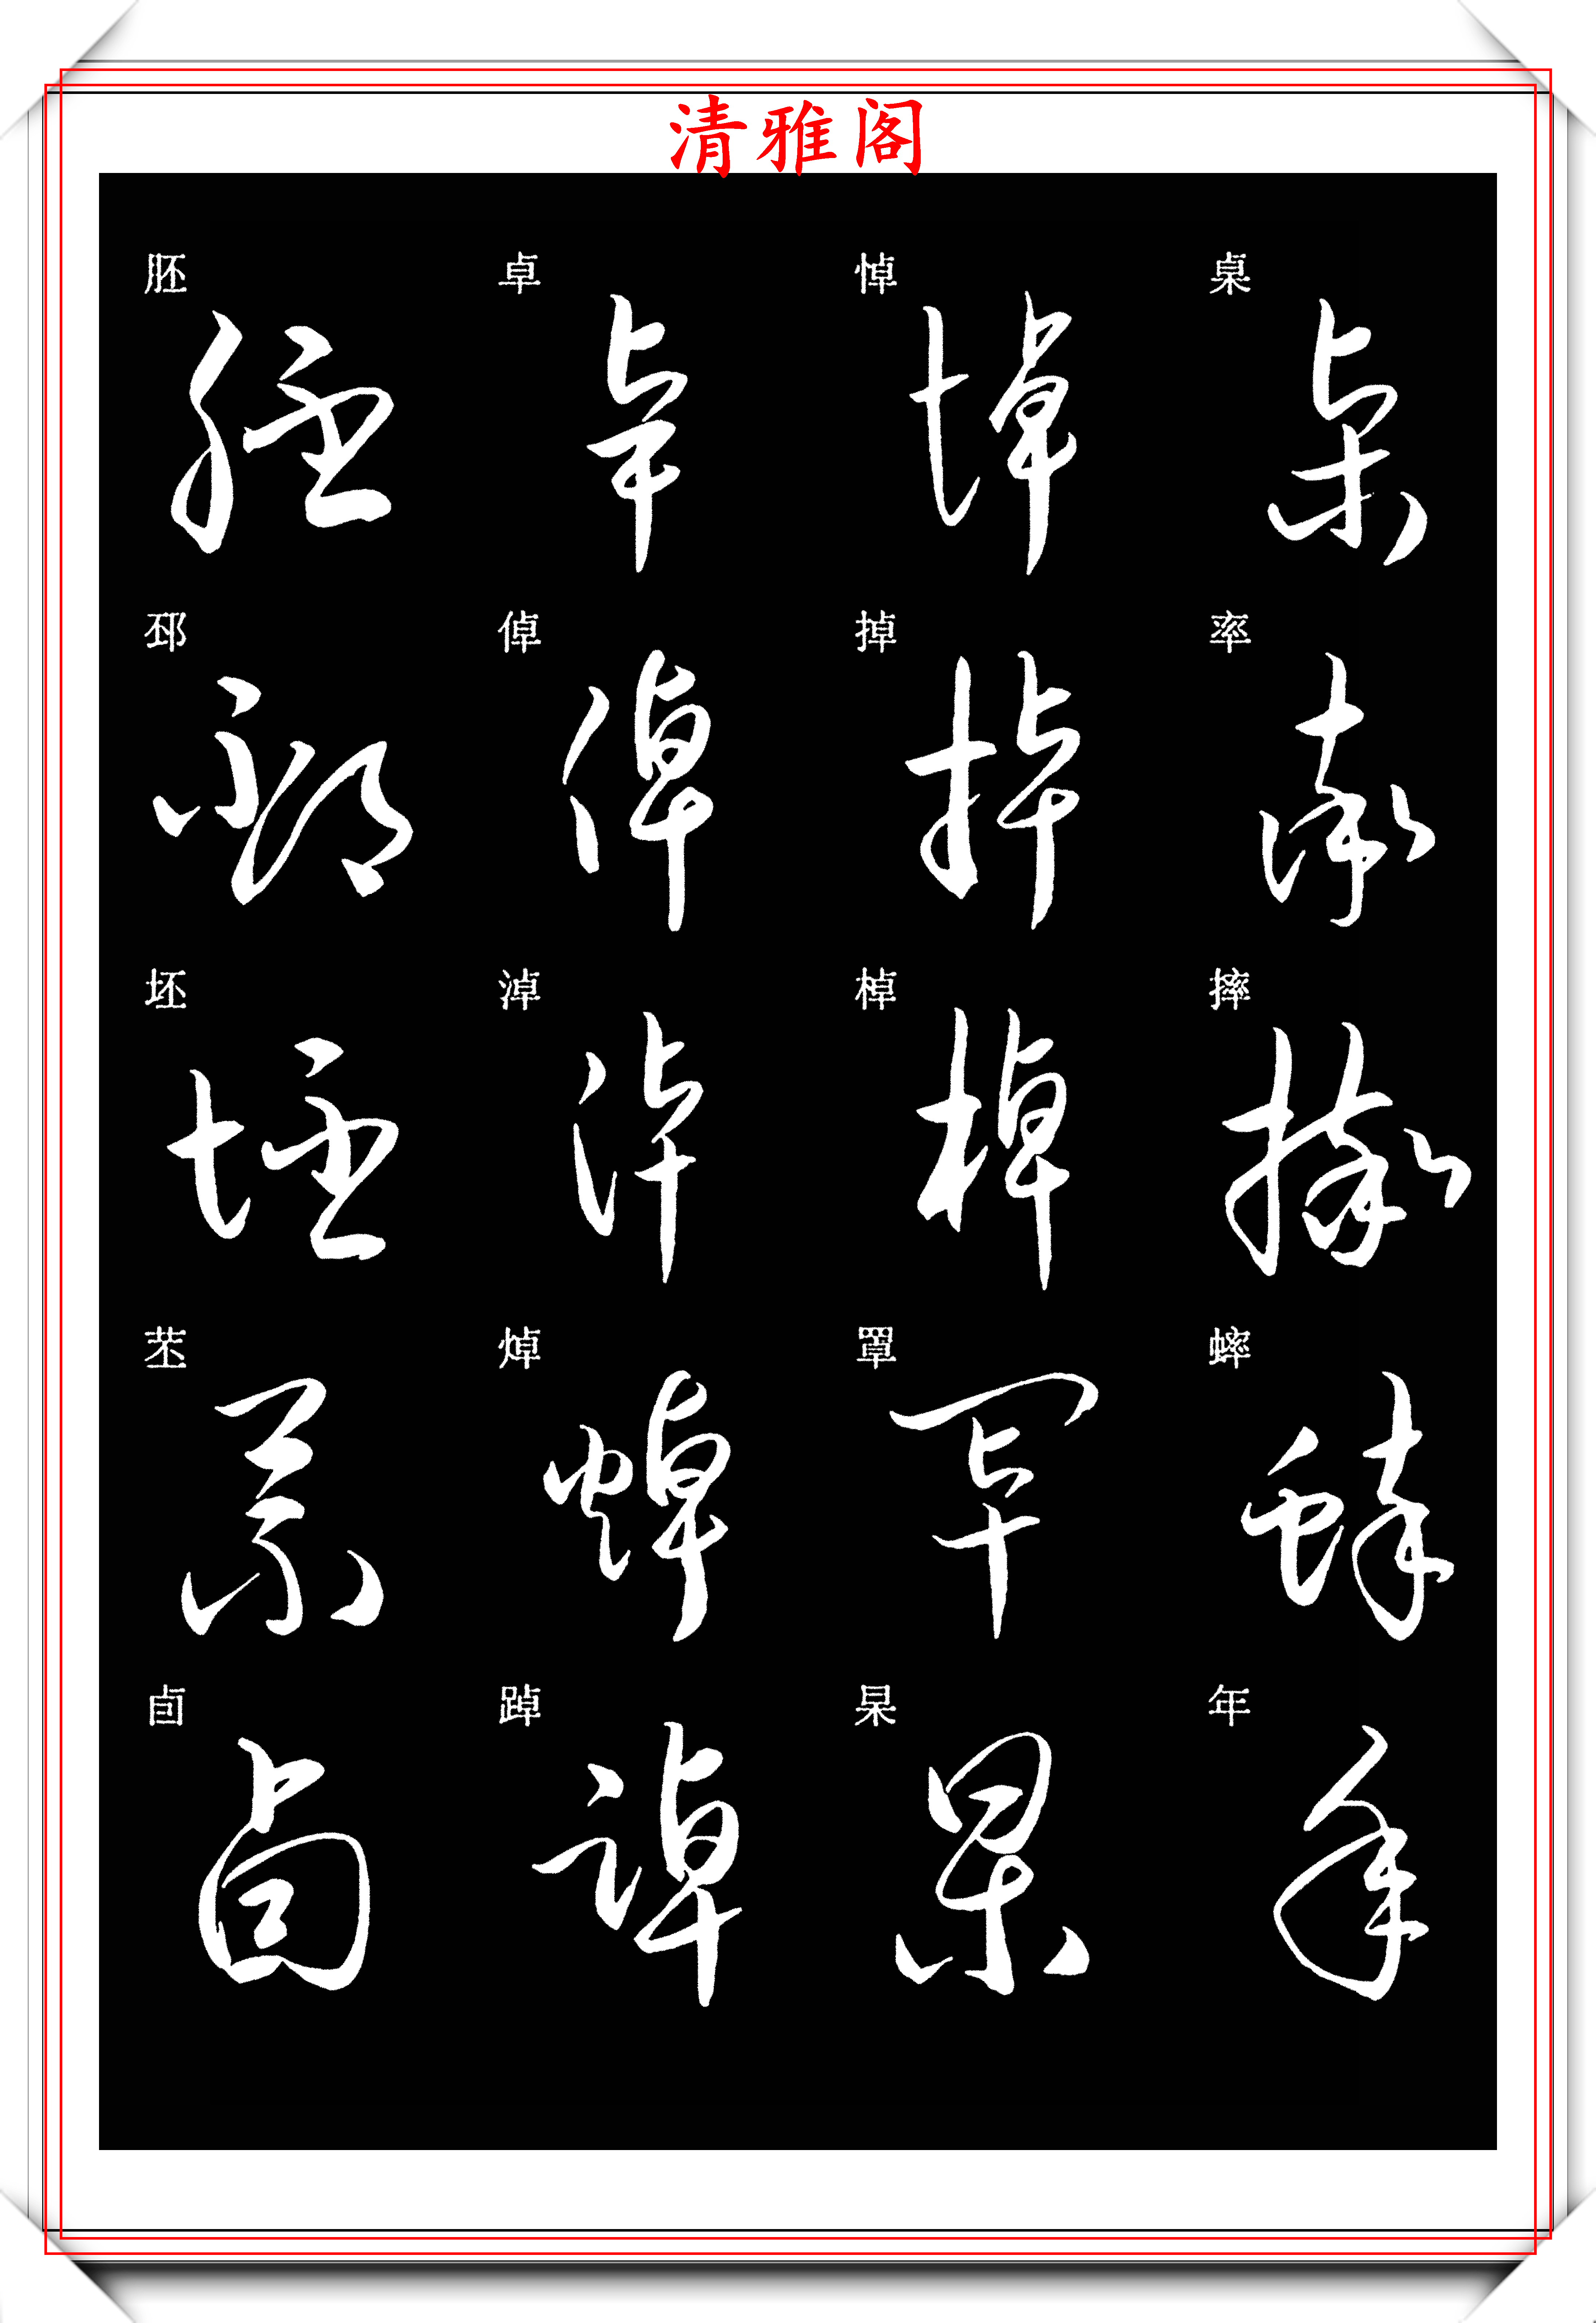 清雅阁
胚 邳 坯 苤 卣
卓 倬 淖 焯 踔
悼 掉 棹 罩 杲
桌 率 摔 蟀 年